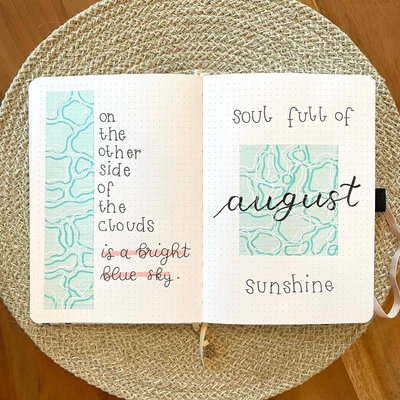 on
the
other
side
of
the
clouds
is a bright
blue sky.
soul full of
august
sunshine